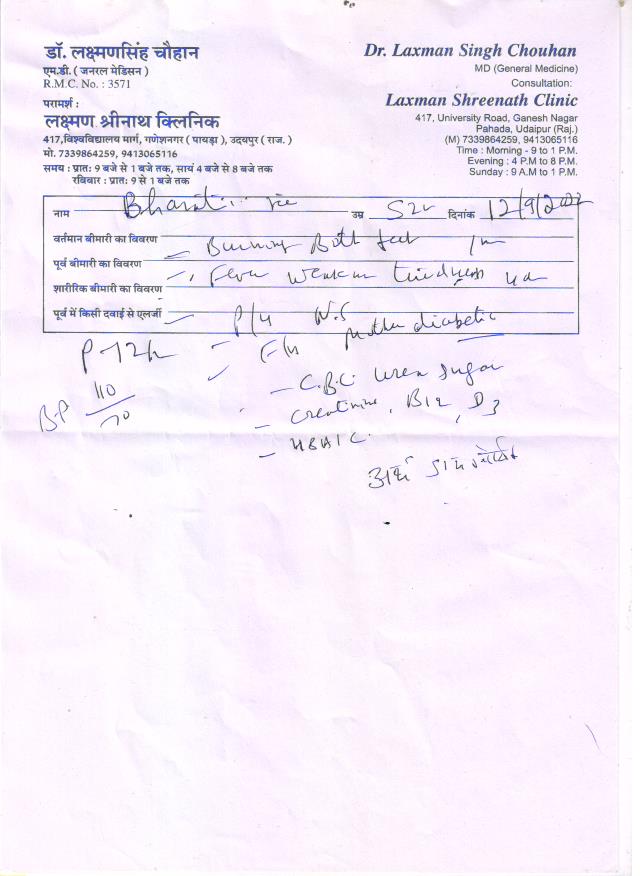 डॉ. लक्ष्मणसिंह चौहान
एम.डी. ( जनरल मेडिसन )
R.M.C. No. : 3571
परामर्श :
लक्ष्मण श्रीनाथ क्लिनिक
417,विश्वविद्यालय मार्ग, गणेशनगर ( पायड़ा ), उदयपुर ( राज. )
मो. 7339864259, 9413065116
समय : प्रातः 9 बजे से 1 बजे तक, सायं 4 बजे से 8 बजे तक
रविवार : प्रातः 9 से 1 बजे तक
Dr. Laxman Singh Chouhan
MD (General Medicine)
Consultation:
Laxman Shreenath Clinic
417, University Road, Ganesh Nagar
Pahada, Udaipur (Raj.)
(M) 7339864259, 9413065116
Time : Morning - 9 to 1 P.M.
Evening : 4 P.M to 8 P.M.
Sunday : 9 A.M to 1 P.M.
नाम उम्र दिनांक 12/9/2022
वर्तमान बीमारी का विवरण Burning Both feet
पूर्व बीमारी का विवरण Fever
शारीरिक बीमारी का विवरण
पूर्व में किसी दवाई से एलर्जी P/H N.S
F/H Mother diabetic
BP 110/70
- C.B.C. Urea Sugar
- Creatinine, B12, D3
- HBA1C.